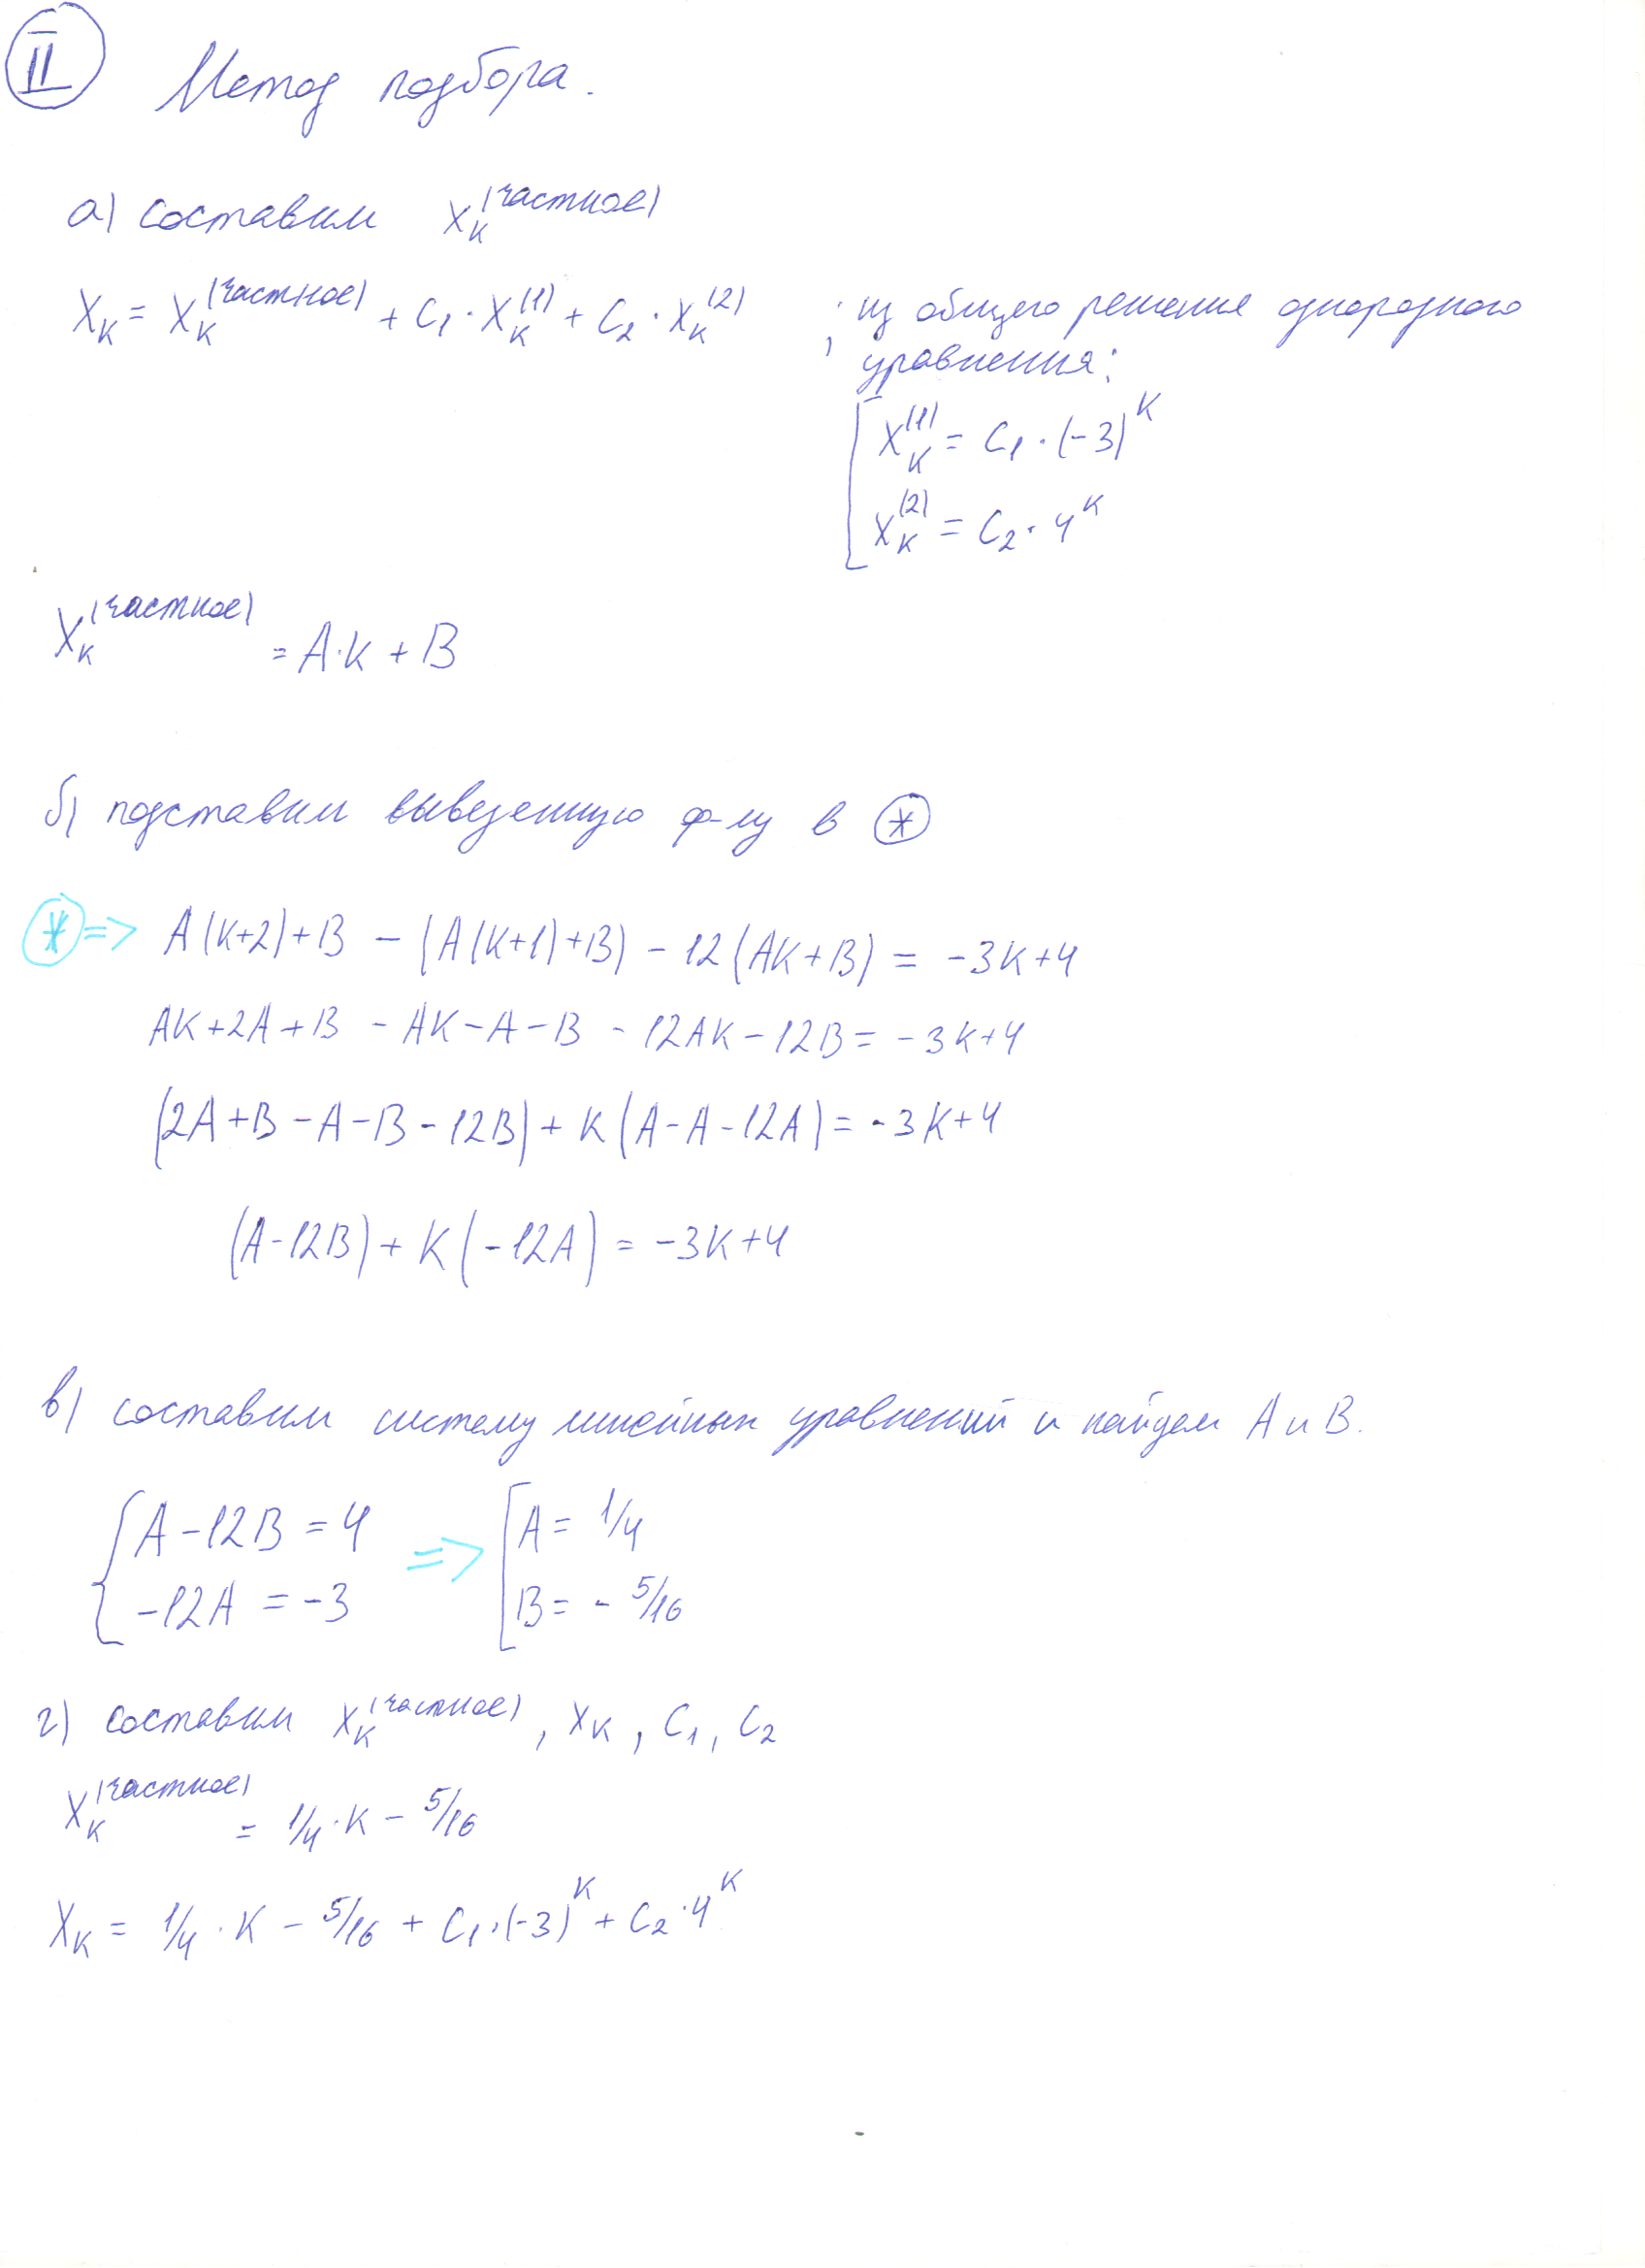 II Метод подбора.
а) составим X_K^(частное)
X_K = X_K^(частное) + C_1 · X_K^(1) + C_2 · X_K^(2) ; из общего решения однородного
уравнения:
X_K^(1) = C_1 · (-3)^K
X_K^(2) = C_2 · 4^K
X_K^(частное) = A·K + B
б) подставим выведенную ф-лу в *
* => A(K+2)+B - (A(K+1)+B) - 12(AK+B) = -3K+4
AK+2A+B - AK-A-B - 12AK-12B = -3K+4
(2A+B-A-B-12B) + K(A-A-12A) = -3K+4
(A-12B) + K(-12A) = -3K+4
в) составим систему линейных уравнений и найдем A и B.
{ A-12B = 4 => [ A = 1/4
-12A = -3 B = - 5/16
г) составим X_K^(частное), X_K, C_1, C_2
X_K^(частное) = 1/4·K - 5/16
X_K = 1/4 · K - 5/16 + C_1·(-3)^K + C_2·4^K